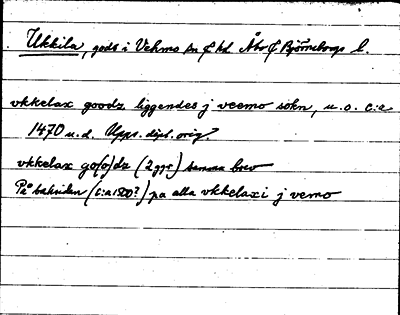 Ukkila, gods i Vehmo sn o hd Åbo o Björneborgs l.
vkkelax goodz liggendes j veemo sokn, u.o. c:a
1470 u.d. Upps. dipl. orig.
vkkelax go(o)dz (2 ggr) samma brev
På baksidan (c:a 1500?) pa alla vkkelaxi j vemo